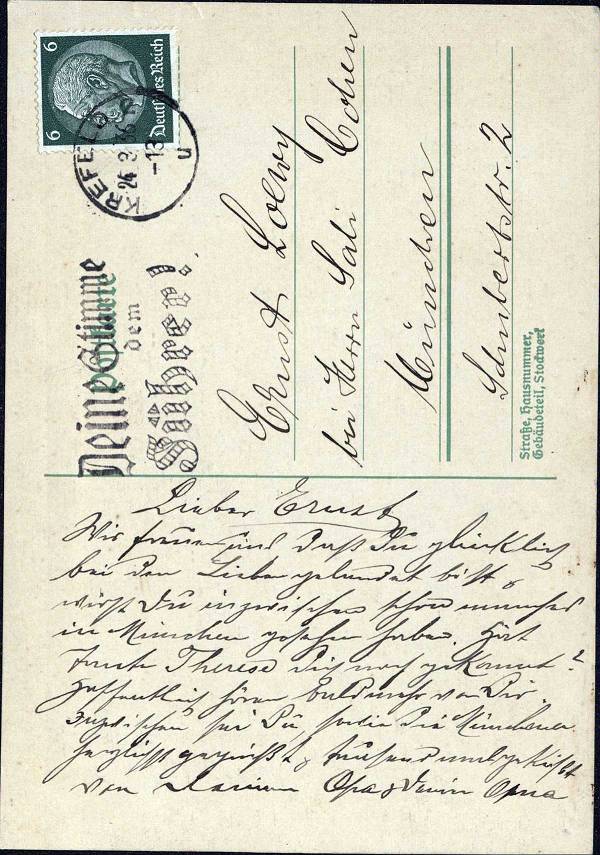 6 6
Deutsches Reich
KREFELD
24.3.36
-13
u
Deine Stimme
dem
Führer!
Ernst Loewy
bei Herrn Sali Cohen
München
Schubertstr. 2
Straße, Hausnummer,
Gebäudeteil, Stockwerk
Lieber Ernst
Wir freuen uns daß Du glücklich
bei den Lieben gelandet bist &
wirst Du inzwischen schon manches
in München gesehen haben. Hat
Tante Therese Dich noch gekannt?
Hoffentlich hören bald mehr von Dir.
Inzwischen sei Du, sowie die Münchener
herzlichst gegrüßt & tausendmal geküßt
von Deinem Opa & Deiner Oma